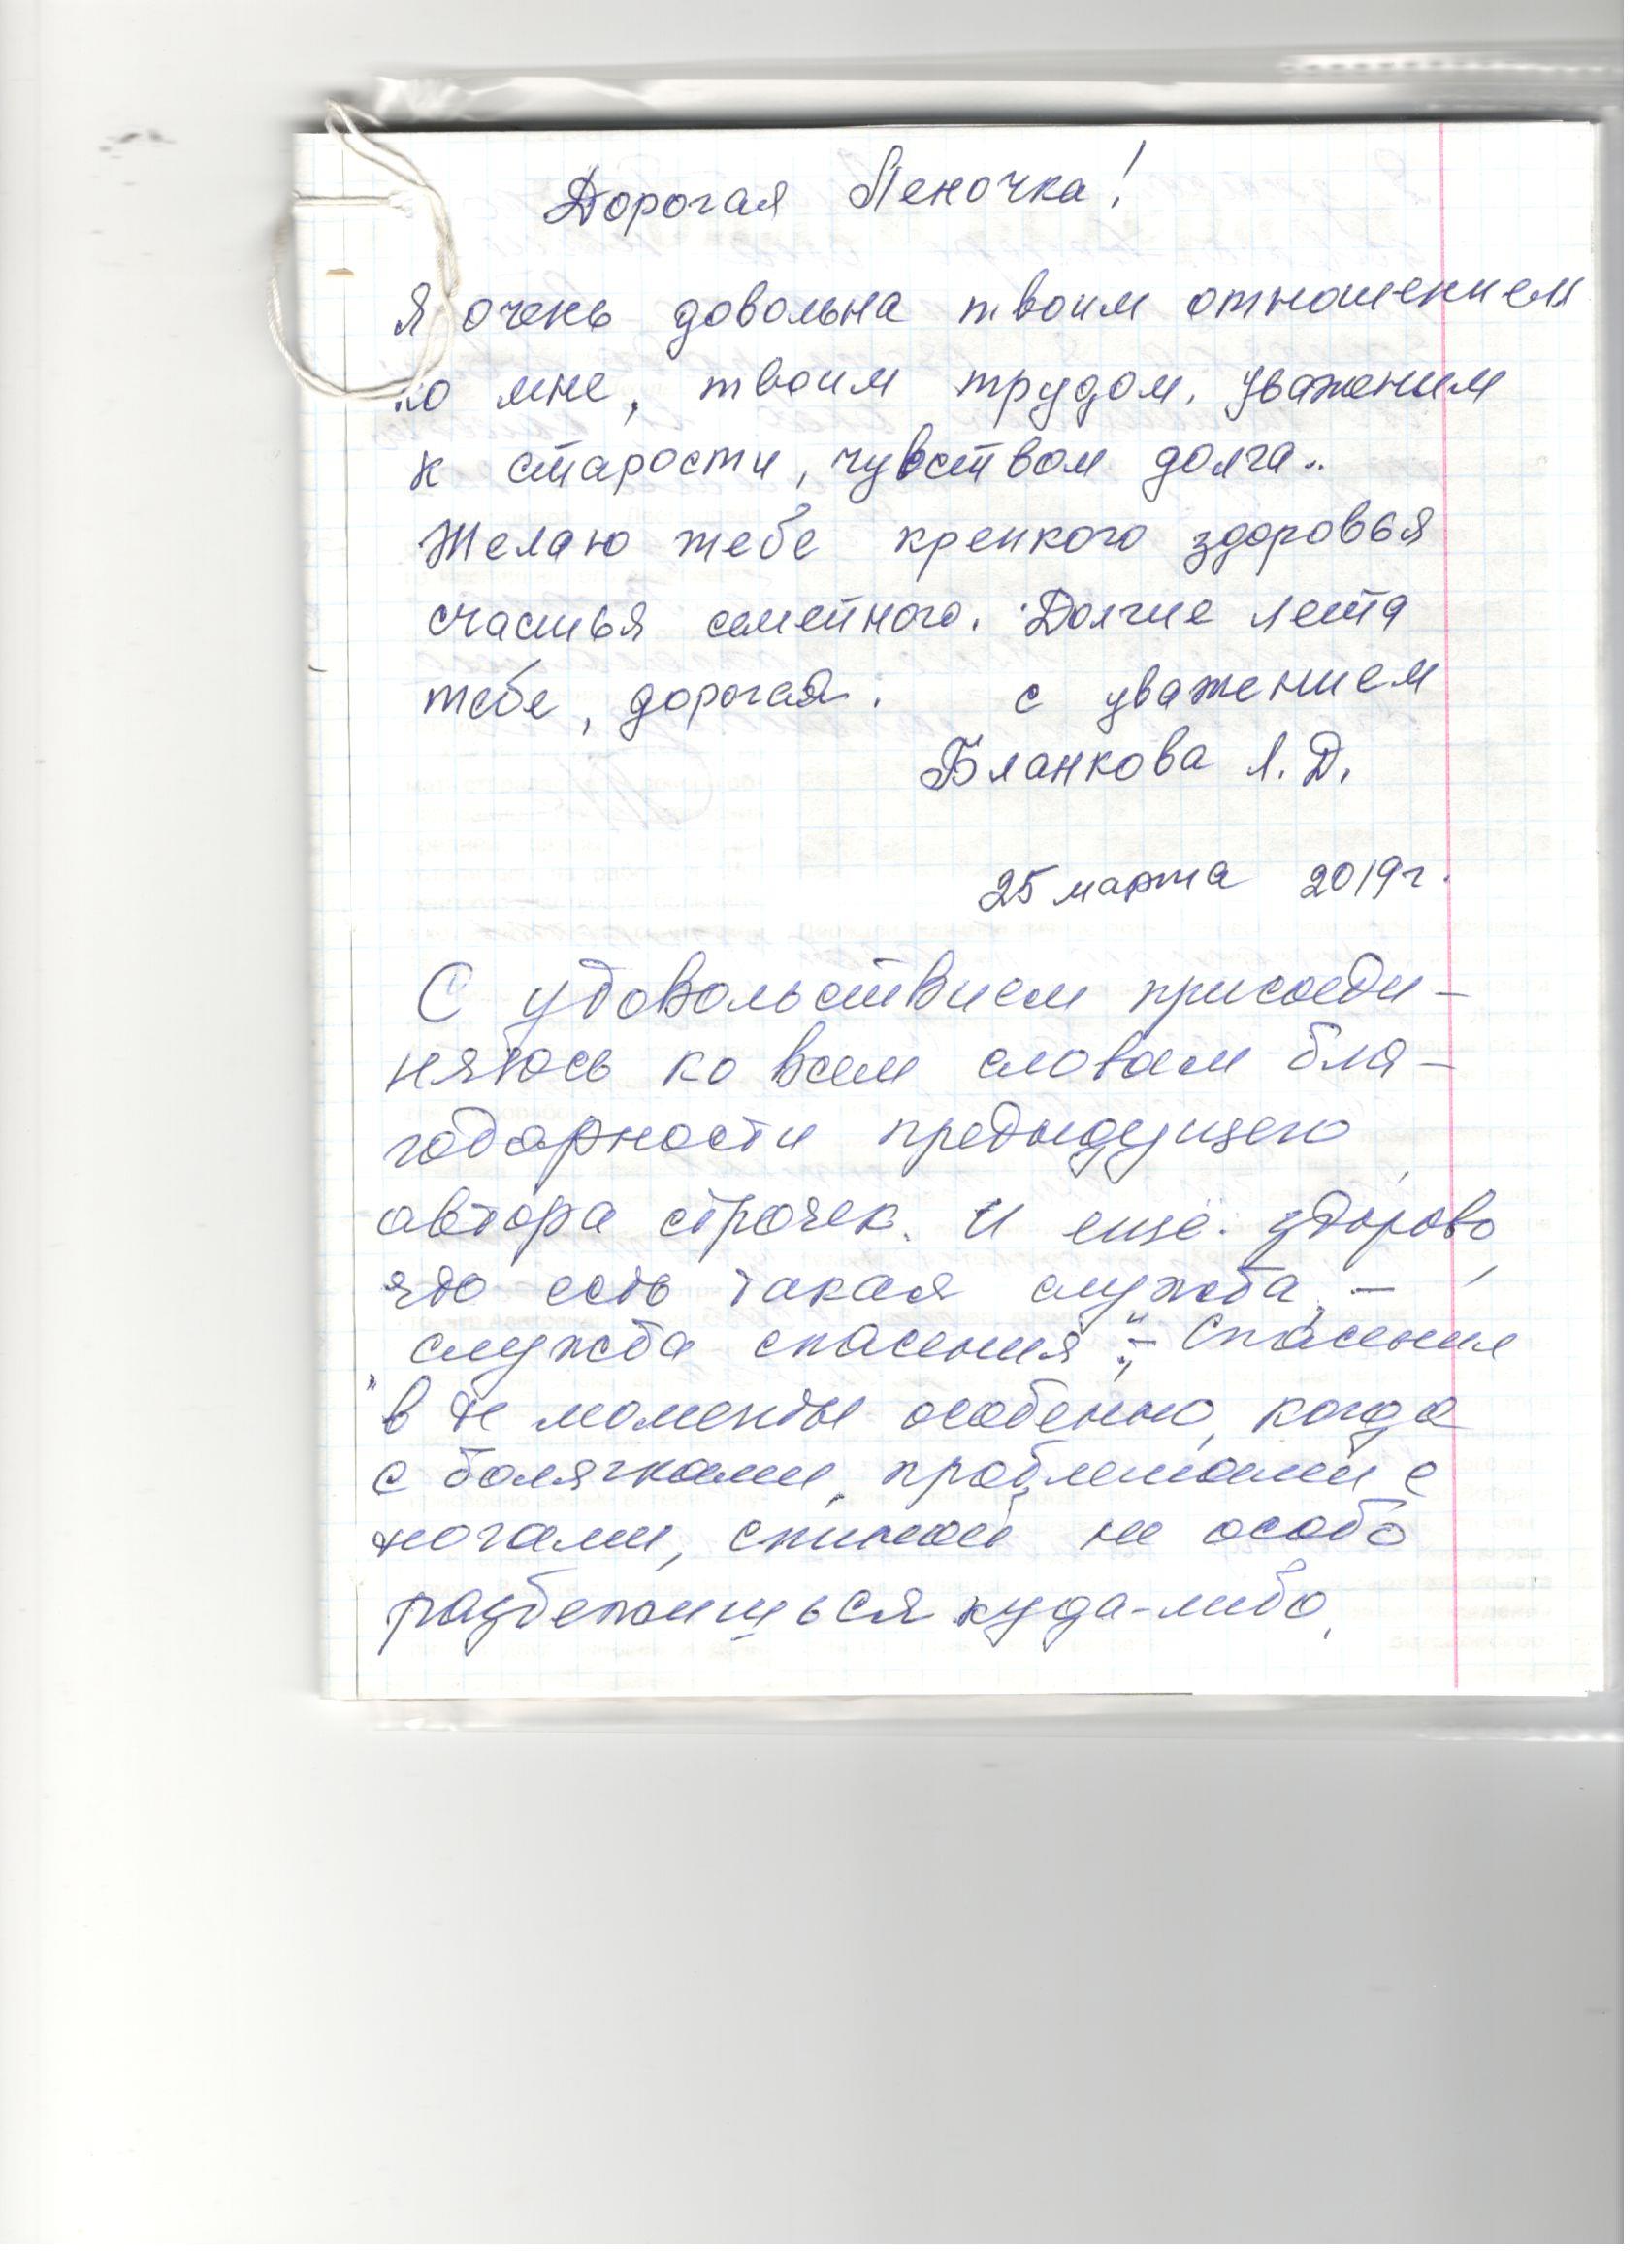 Дорогая Леночка!
Я очень довольна твоим отношением
ко мне, твоим трудом, уваженим
к старости, чувством долга..
Желаю тебе крепкого здоровья
счастья семейного. Долгие лета
тебе, дорогая. с уважением
Бланкова Л. Д.
25 марта 2019г.
С удовольствием присоеди-
няюсь ко всем словам бла-
годарности предыдущего
автора строчек. И ещё: здорово,
что есть такая служба, -
"служба спасения". - Спасения
в те моменты особенно, когда
с болячками, проблемами с
ногами, спиной не особо
разбежишься куда-либо,